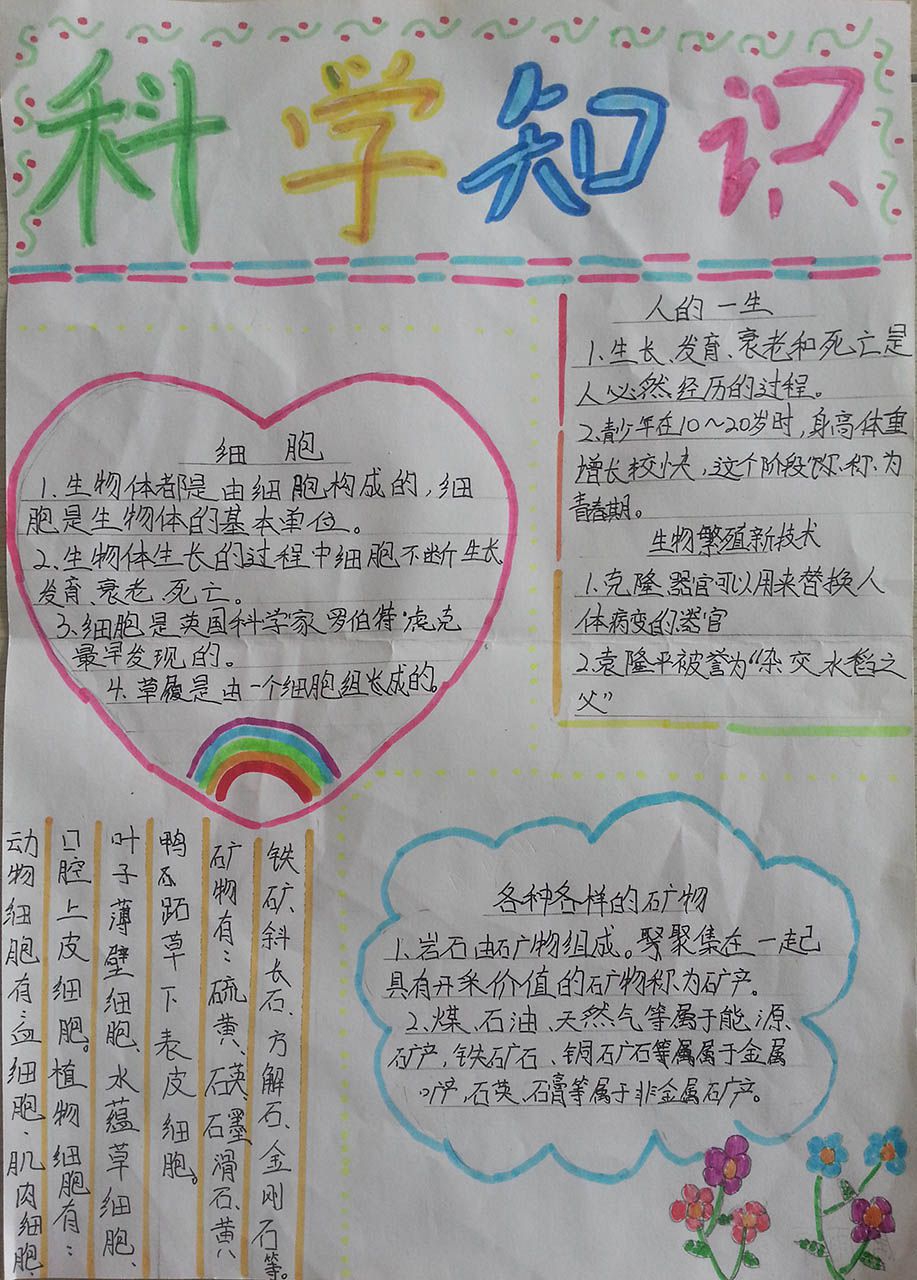 科学知识
人的一生
1、生长、发育、衰老和死亡是
人必然经历的过程。
2、青少年在10~20岁时,身高体重
增长较快,这个阶段称为
青春期。
生物繁殖新技术
1、克隆器官可以用来替换人
体病变的器官
2、袁隆平被誉为“杂交水稻之
父”
细胞
1、生物体都是由细胞构成的,细
胞是生物体的基本单位。
2、生物体生长的过程中细胞不断生长
发育、衰老、死亡。
3、细胞是英国科学家罗伯特·虎克
最早发现的。
4、草履是由一个细胞组长成的。
动物细胞有:血细胞、肌肉细胞、
口腔上皮细胞。植物细胞有:
叶子薄壁细胞、水蕴草细胞、
鸭不跖草下表皮细胞。
矿物有:硫黄、石英、石墨、滑石、黄
铁矿、斜长石、方解石、金刚石等。
各种各样的矿物
1、岩石由矿物组成。聚聚集在一起
具有开采价值的矿物称为矿产。
2、煤、石油、天然气等属于能源
矿产,铁矿石、铜矿石等属属于金属
矿产,石英、石膏等属于非金属矿产。